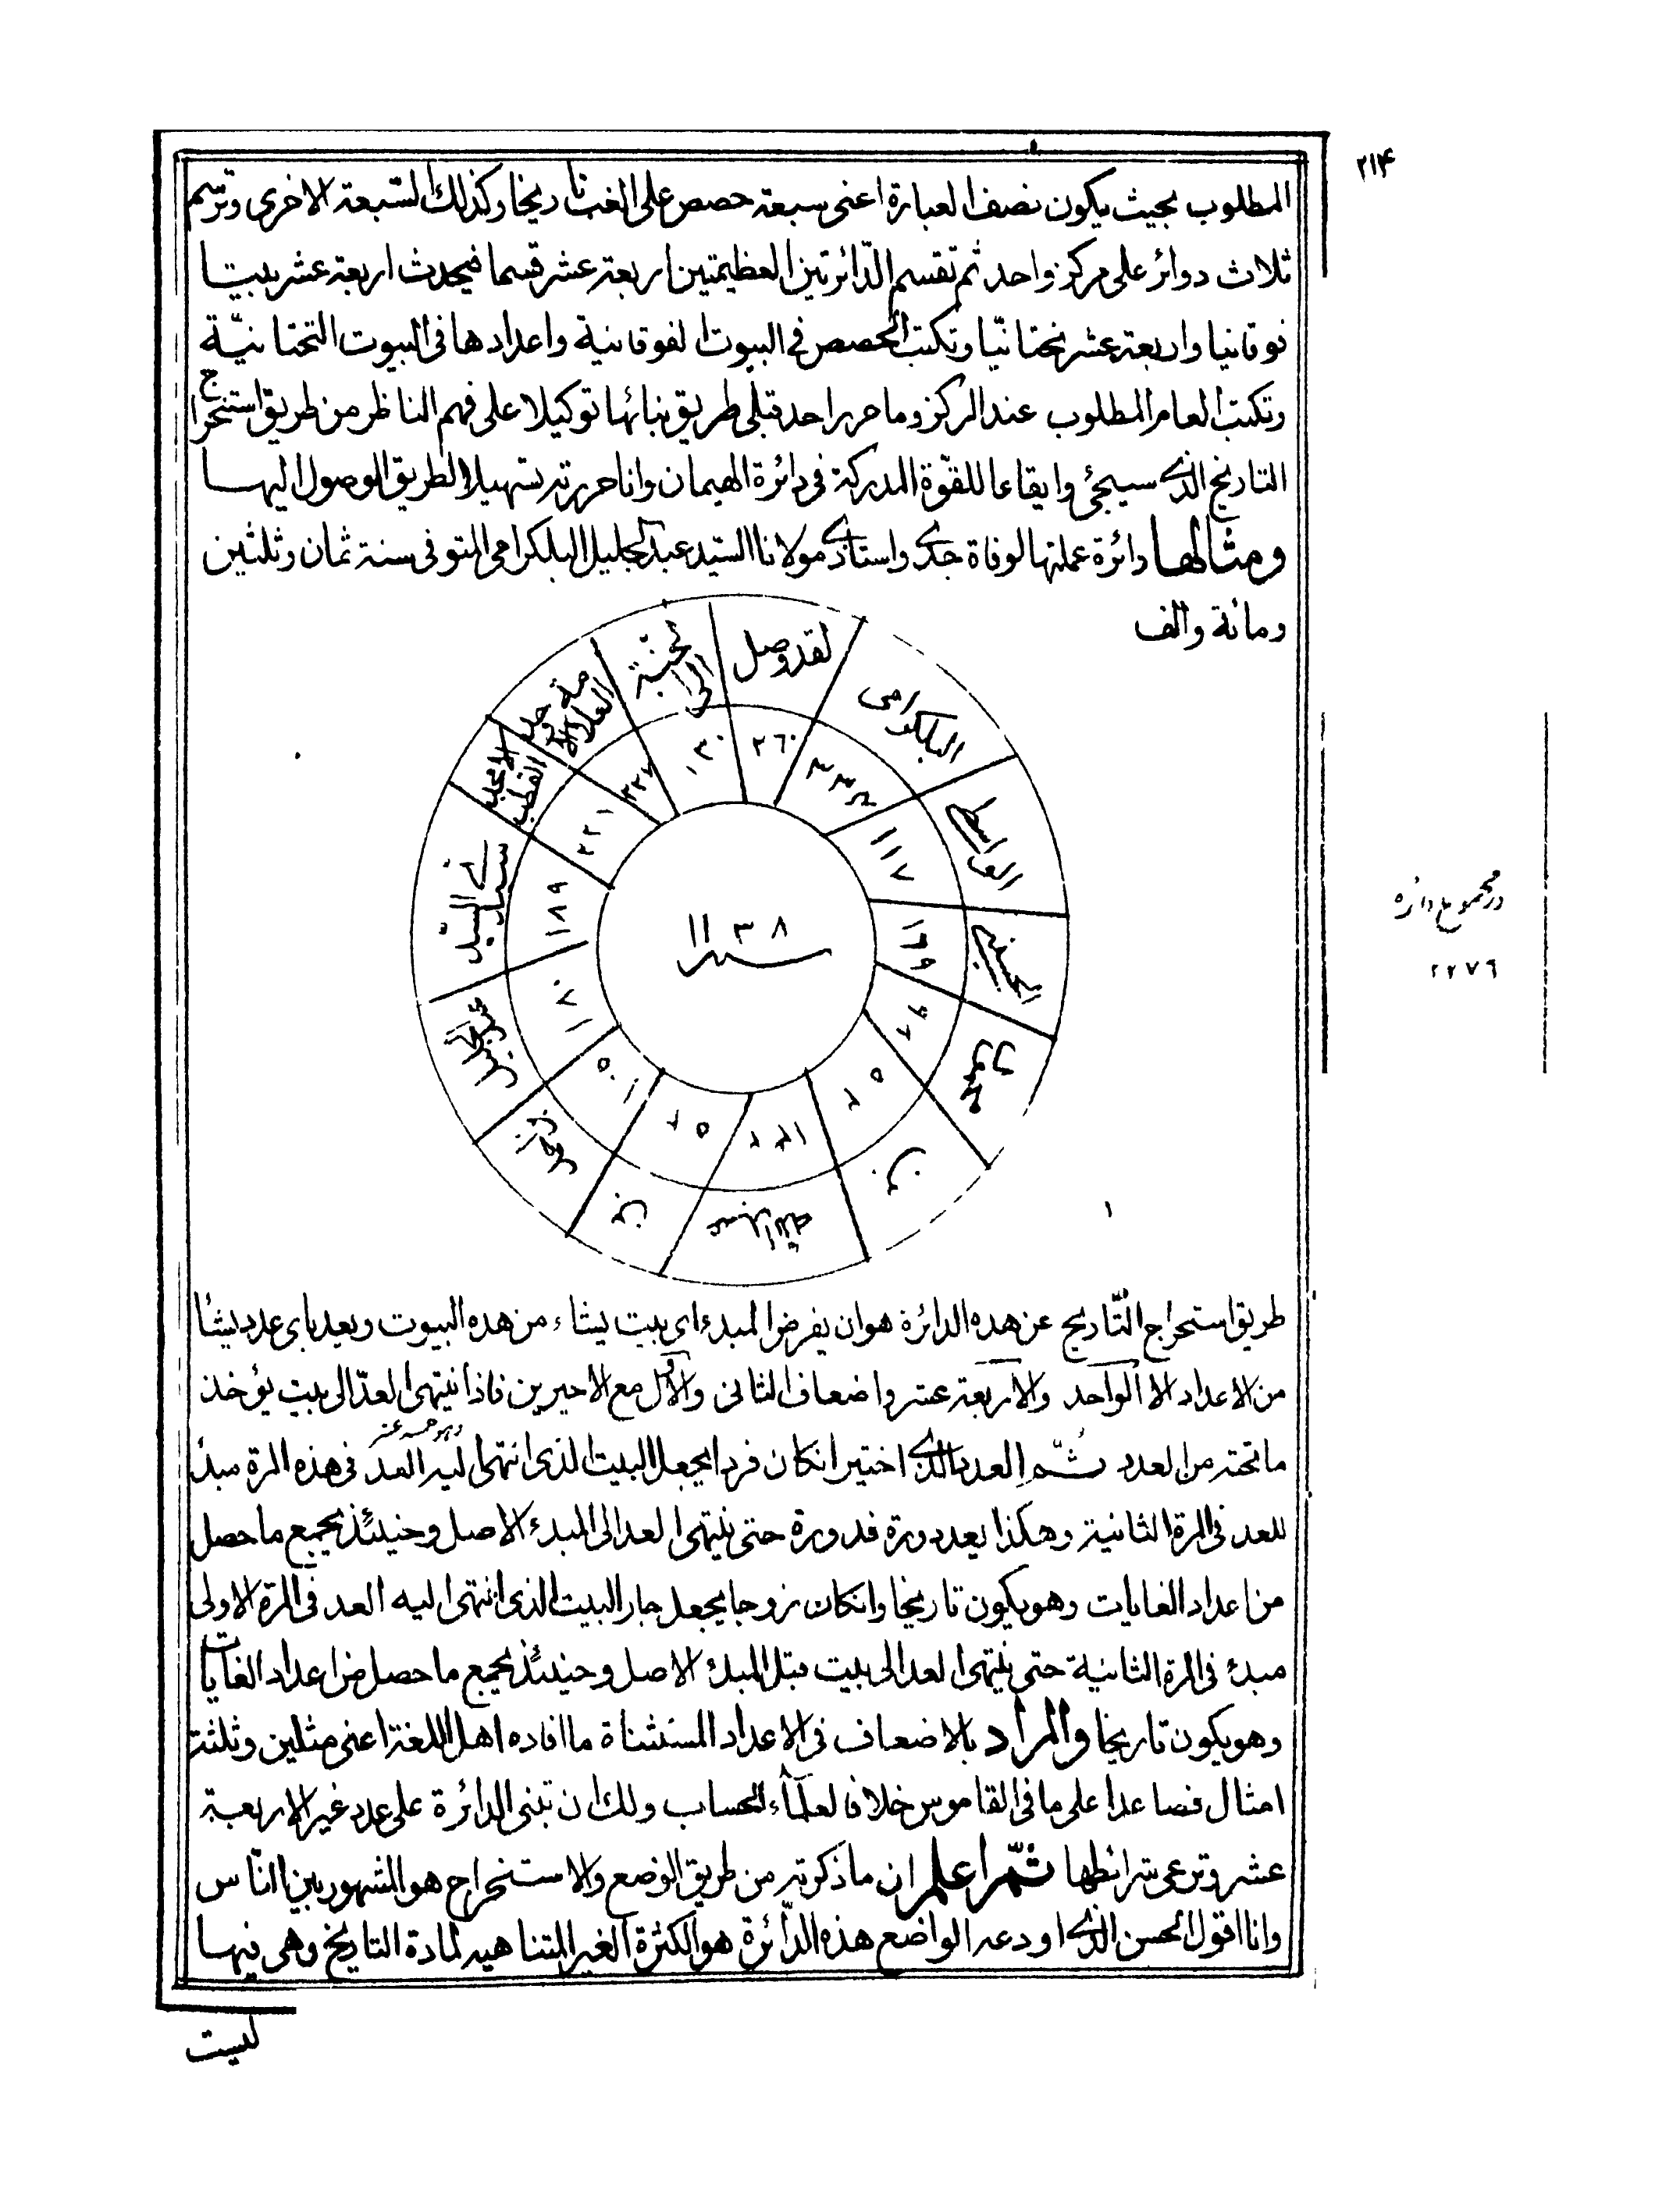 ۲۱۴
المطلوب بحيث يكون نصف العبارة اعنى سبعة حصص على الغب تاريخا وكذلك السّبعة الاخرى وترسم
ثلاث دوائر على مركز واحد ثم تقسم الدّائرتين العظيمتين اربعة عشر قسما فيحدث اربعة عشر بيتا
فوقانيا واربعة عشر تحتانيّا وتكتب الحصص فى البيوت الفوقانية واعدادها فى البيوت التحتانيّة
وتكتب العام المطلوب عند المركز وما حرر احد قبلى طريق بنائها توكيلا على فهم الناظر من طريق استخراج
التاريخ الذى سيجئ وايقاعا للقوّة المدركة فى دائرة الهيمان وانا حررته تسهيلا لطريق الوصول اليها
ومثالها دائرة عملتها لوفاة جدى واستاذى مولانا السّيد عبد الجليل البلكرامى المتوفى سنة ثمان وثلثين
ومائة والف
لقد وصل ٢٦٠
الى الجنّة ١٣٠
العلامة الاوحد ٢٣٧
القطب الامجد ٢٢١
سيدنى السيّد ١٨٩
عبد الجليل ١٨٠
بن احمد ١٠٥
بن ٥٢
عبد الله ١٤٢
بن ٥٢
محمود ٩٨
الحسينى ١٦٩
الواسطى ١١٧
البلكرامى
١١٣٨
سنة
در مجموع دائره
٢٢٧٦
طريق استخراج التّاريخ عن هذه الدائرة هو ان يفرض المبدء اى بيت يشاء من هذه البيوت ويعد باى عدد يشا
من الاعداد الا الواحد والاربعة عشر واضعاف الثانى والاوّل مع الاخيرين فاذا ينتهى العدّ الى بيت يؤخذ
ما تحته من العدد ثُمّ العدد الذى اختير ان كان فردا يجعل البيت الذى انتهى اليه العد فى هذه المرة مبدأ
للعد فى المرة الثانية وهكذا يعد دورة فدورة حتى ينتهى العد الى المبدء الاصل وحينئذ يجمع ما حصل
من اعداد الغايات وهو يكون تاريخا وان كان زوجا يجعل جار البيت الذى انتهى اليه العد فى المرة الاولى
مبدء فى المرة الثانية حتى ينتهى العد الى بيت قبل المبدء الاصل وحينئذ يجمع ما حصل من اعداد الغايات
وهو يكون تاريخا والمراد بالاضعاف فى الاعداد المستثناة ما افاده اهل اللغة اعنى مثلين وثلثة
امثال فصاعدا على ما فى القاموس خلافا لعلماء الحساب ولك ان تبنى الدائرة على عدد غير الاربعة
عشر وترعى شرائطها ثمّ اعلم ان ما ذكرته من طريق الوضع والاستخراج هو المشهور بين النّاس
وانا اقول الحسن الذى اودعه الواضع هذه الدّائرة هو الكثرة الغير المتناهيه لمادة التاريخ وهى فيها
ليست